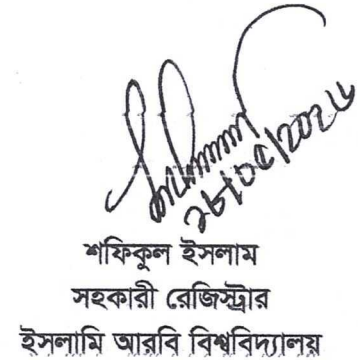 শফিকুল ইসলাম
সহকারী রেজিস্ট্রার
ইসলামি আরবি বিশ্ববিদ্যালয়